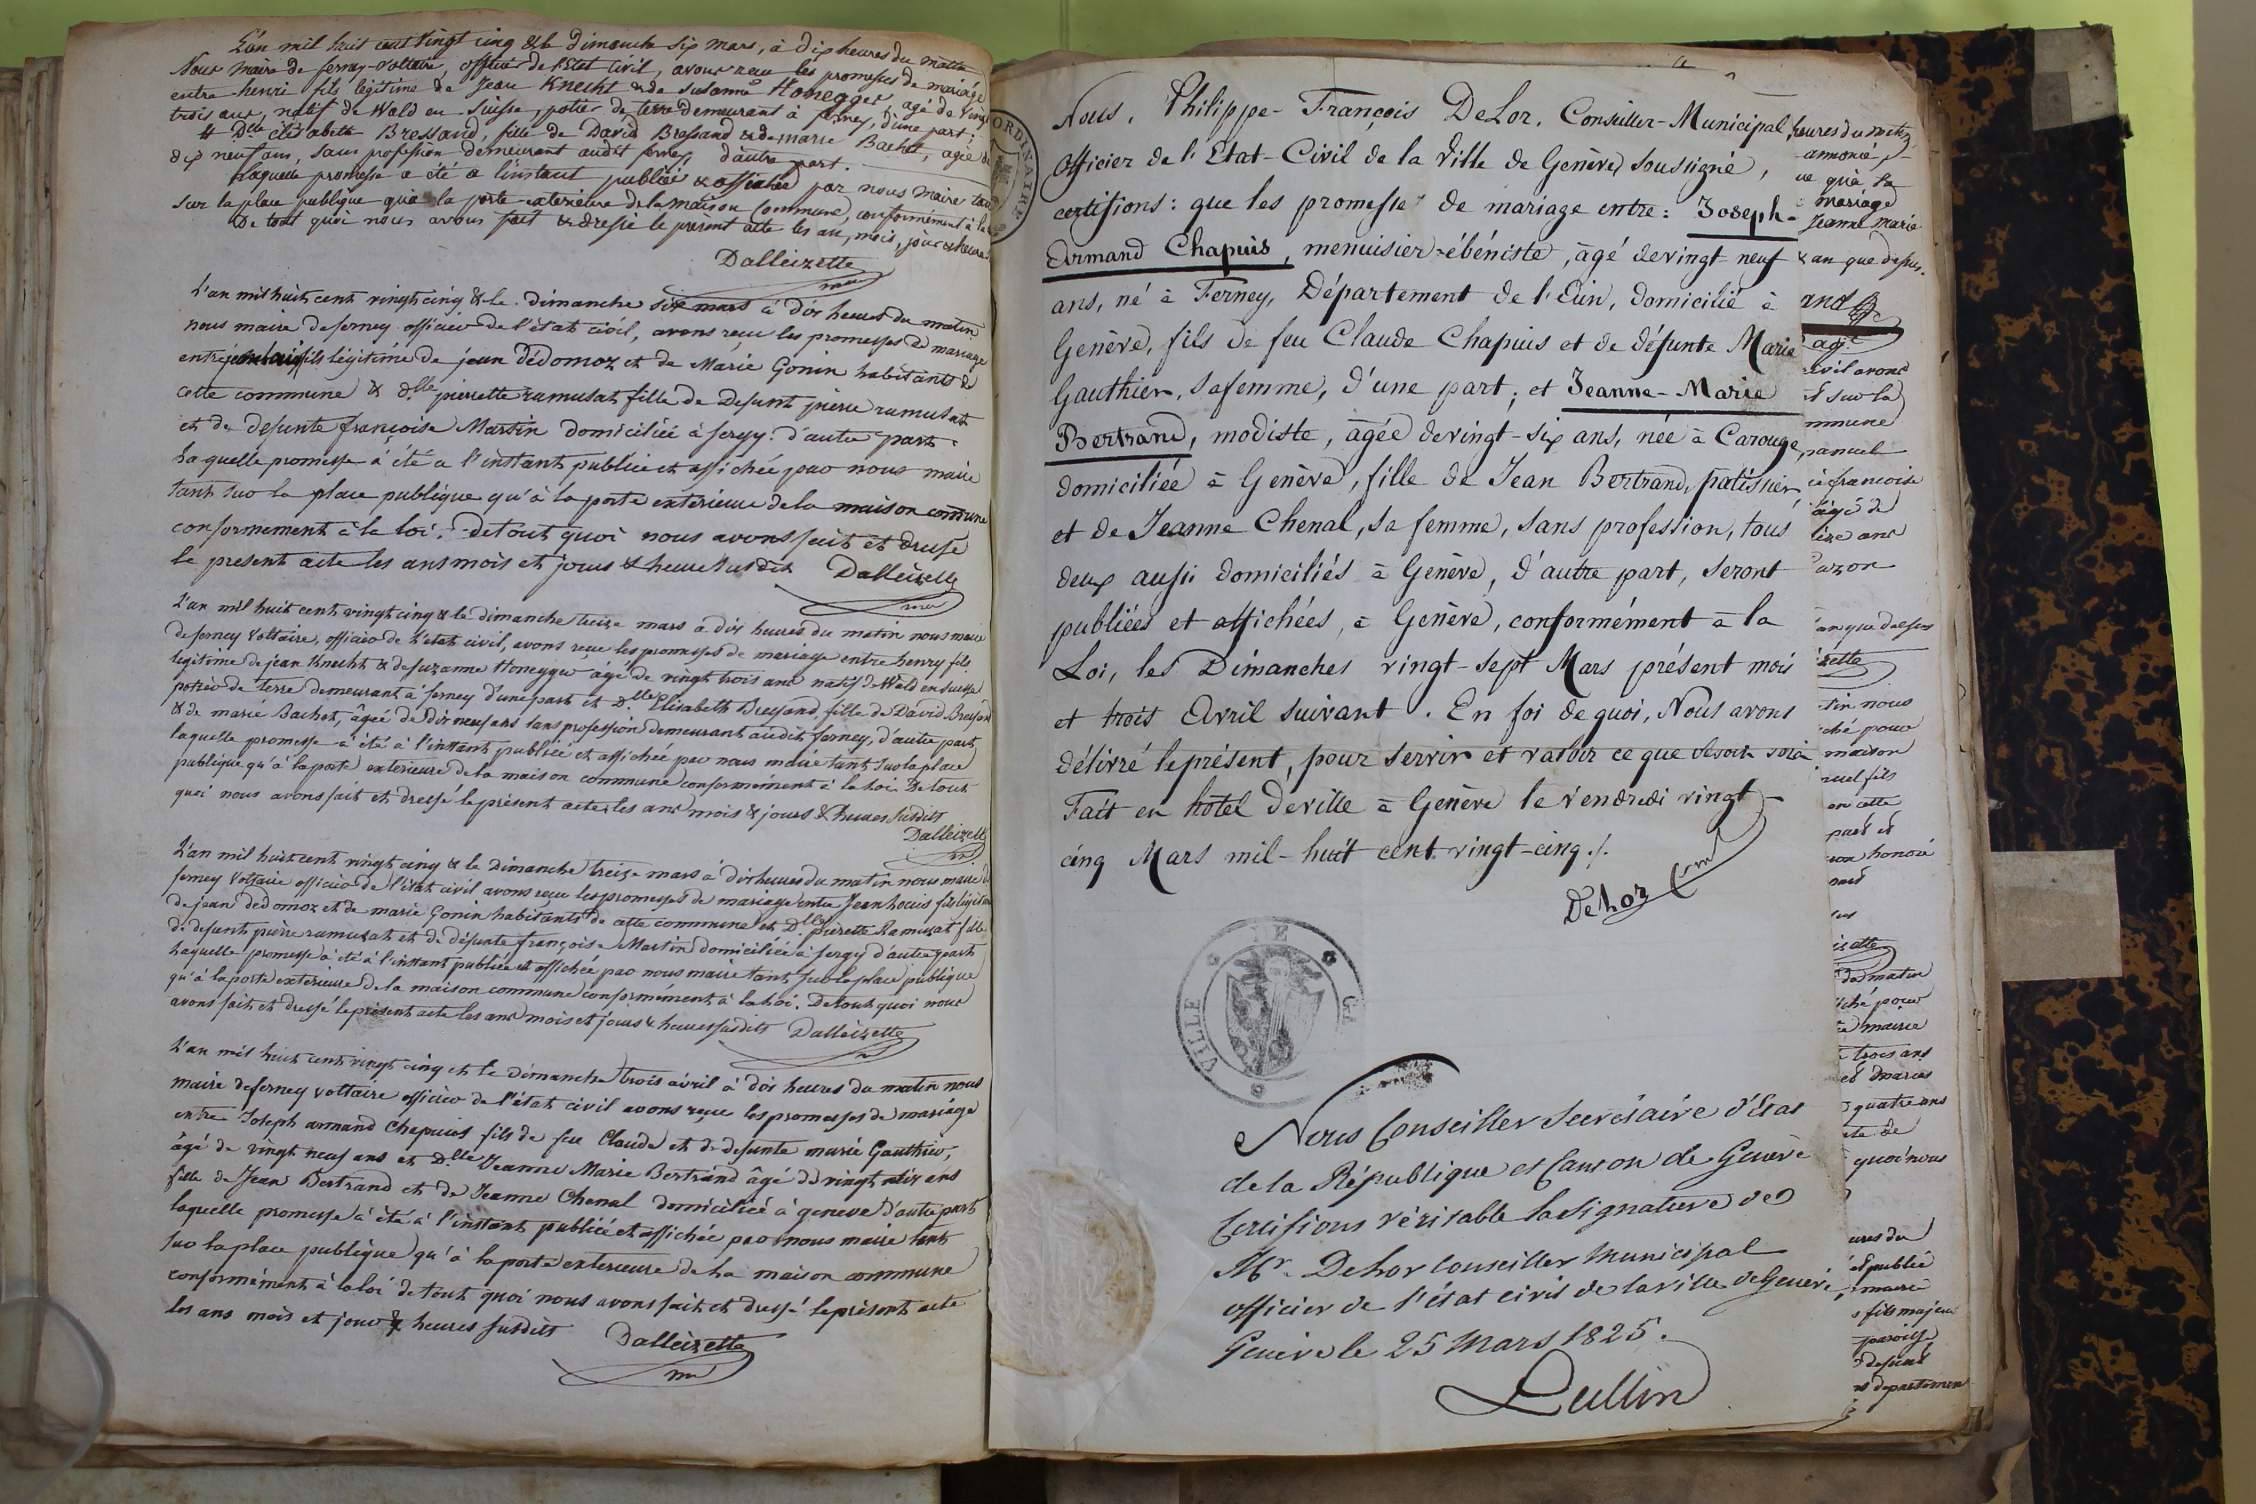 L'an mil huit cent vingt cinq & le Dimanche six mars, à dix heures du matin
Nous Maire de ferney-voltaire, officier de l'Etat civil, avons reçu les promesses de mariage
entre henri fils légitime de Jean Knecht & de Susanne Honegger, agé de vingt
trois ans, natif de Wald en Suisse, potier de terre demeurant à ferney, d'une part;
& Dlle élisabeth Bressand, fille de David Bressand & de marie Bachet, agée de
dix neuf ans, sans profession demeurant audit ferney, d'autre part.
Laquelle promesse a été a l'instant publiée & affichée par nous Maire tant
sur la place publique qu'à la porte exterieure de la maison Commune, conformément à la
De tout quoi nous avons fait & dressé le présent acte les an, mois, jour & heure.
Dalleizette
L'an mil huit cent vingt cinq & le dimanche six mars à dix heures du matin
nous maire de ferney officier de l'état civil, avons reçu les promesses de mariage
entre jean louis fils légitime de jean dédomoz et de Marie Gonin habitants de
cette commune & dlle pierrette ramusat fille de Defunt pierre ramusat
et de defunte françoise Martin domiciliée à sergy. d'autre part.
Laquelle promesse à été a l'instant publiée et affichée par nous maire
tant sur la place publique qu'à la porte exterieure de la maison commune
conformement à la loi. De tout quoi nous avons fait et dressé
le present acte les ans mois et jours & heure susdits Dalleizette
L'an mil huit cent vingt cinq & le dimanche treize mars a dix heures du matin nous maire
de ferney Voltaire, officier de l'état civil, avons reçu les promesses de mariage entre henry fils
légitime de jean Knecht & de suzanne Honegger agé de vingt trois ans natif de Wald en Suisse
potier de terre demeurant à ferney d'une part et Dlle Elisabeth Bressand, fille de David Bressand
& de marie Bachet, âgée de dix neuf ans sans profession demeurant audit ferney, d'autre part
laquelle promesse à été à l'instant publiée et affichée par nous maire tant sur la place
publique qu'à la porte exterieure de la maison commune conformément à la loi. De tout
quoi nous avons fait et dressé le présent acte les ans mois & jours & heures susdits
Dalleizette
L'an mil huit cent vingt cinq & le dimanche treize mars à dix heures du matin nous maire de
ferney Voltaire officier de l'état civil avons reçu les promesses de mariage entre Jean Louis fils légitime
de jean dedomoz et de marie Gonin habitants de cette commune et Dlle pierette Ramusat fille
de defunt pierre ramusat et de défunte françoise Martin domiciliée à sergy d'autre part
Laquelle promesse à été à l'instant publiée et affichée par nous maire tant sur la place publique
qu'à la porte exterieure de la maison commune conformément à la loi. De tout quoi nous
avons fait et dressé le présent acte les ans mois et jours & heures susdits Dalleizette
L'an mil huit cent vingt cinq et le dimanche trois avril à dix heures du matin nous
maire de ferney voltaire officier de l'état civil avons reçu les promesses de mariage
entre Joseph armand Chapuis fils de feu Claude et de defunte marie Gauthier,
âgé de vingt neuf ans et Dlle Jeanne Marie Bertrand âgé de vingt six ans
fille de Jean Bertrand et de Jeanne Chenal domiciliée à geneve d'autre part
laquelle promesse à été à l'instant publiée et affichée par nous maire tant
sur la place publique qu'à la porte exterieure de la maison commune
conformément à la loi de tout quoi nous avons fait et dressé le présent acte
les ans mois et jour & heures susdits Dalleizette
ORDINAIRE
Nous, Philippe-François DeLor, Conseiller-Municipal,
Officier de l'Etat-Civil de la Ville de Genève, soussigné,
certifions: que les promesses de mariage entre: Joseph-
Armand Chapuis, menuisier-ébéniste, âgé de vingt-neuf
ans, né à Ferney, Département de l'Ain, domicilié à
Genève, fils de feu Claude Chapuis et de défunte Marie
Gauthier, sa femme, d'une part; et Jeanne-Marie
Bertrand, modiste, âgée de vingt-six ans, née à Carouge,
domiciliée à Genève, fille de Jean Bertrand, patissier,
et de Jeanne Chenal, sa femme, sans profession, tous
deux aussi domiciliés à Genève, d'autre part, seront
publiées et affichées, à Genève, conformément à la
Loi, les Dimanches vingt-sept Mars présent mois
et trois Avril suivant. En foi de quoi, Nous avons
délivré le présent, pour servir et valoir ce que besoin sera
Fait en hôtel de ville à Genève le Vendredi vingt-
cinq Mars mil-huit cent vingt-cinq ./.
DeLor
VILLE DE GE
Nous Conseiller Secrétaire d'Etat
de la République et Canton de Genève
Certifions véritable la signature de
Mr. DeLor Conseiller Municipal
officier de l'état civil de la ville de Genève,
Genève le 25 Mars 1825.
Lullin
heures du matin
annoncé
que qu'à la
mariage
Jeanne Marie
& an que dessus.
and
agé
civil avons
et sur la
mmune
manuel
françoise
âgé de
ize ans
an que dessus
zette
tin nous
ché pour
maison
nuel fils
en cette
part et
honoré
part
zette
du matin
iché pour
mairie
trois ans
et marie
quatre ans
quoi nous
eures du
et publié
maire
fils majeur
defunt
departement